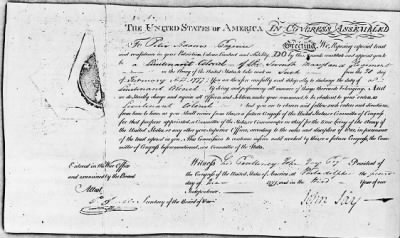 THE UNITED STATES OF AMERICA IN CONGRESS ASSEMBLED
To Peter Adams Esquire Greeting, We, reposing especial trust
and confidence in your Patriotism, Valour, Conduct and Fidelity, DO by these presents constitute and appoint you to
be Lieutenant Colonel of the Seventh Maryland Regiment
in the Army of the United States, to take rank as such from the
A.D. 1777. You are therefore carefully and diligently to discharge the duty of
Lieutenant Colonel by doing and performing all manner of things thereunto belonging. And
we do strictly charge and require all Officers and Soldiers under your command, to be obedient to your orders as
Lieutenant Colonel And you are to observe and follow such orders and directions
from time to time, as you shall receive from this or a future Congress of the United States, or Committee of Congress
for that purpose appointed, a Committee of the States, or Commander in chief for the time being of the Army of
the United States, or any other your superior Officer, according to the rules and discipline of War, in pursuance of
the trust reposed in you. This Commission to continue in force until revoked by this or a future Congress, the
Committee of Congress beforementioned, or a Committee of the States.
Entered in the War Office
and examined by the Board
Attest
Secretary of the Board of War
Witness His Excellency John Jay Esq President of
the Congress of the United States of America, at Philadelphia the
day of 1779, and in the third Year of our
Independence
John Jay